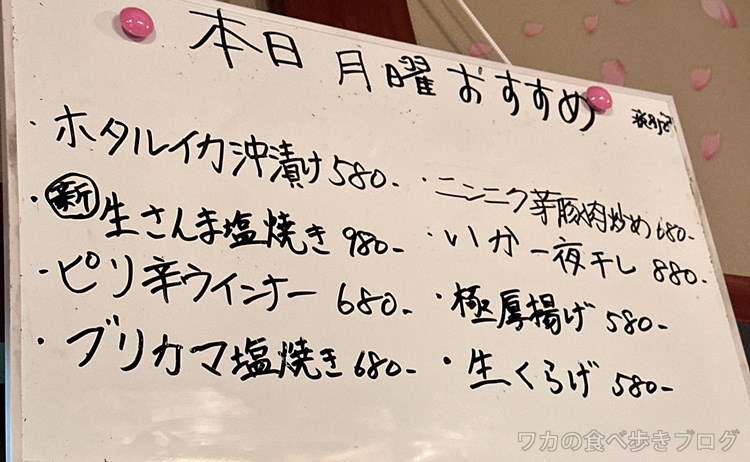 本日 月曜 おすすめ
・ホタルイカ沖漬け 580-
・㊟新 生さんま塩焼き 980-
・ピリ辛ウインナー 680-
・ブリカマ塩焼き 680-
・ニンニク芽豚肉炒め 680-
・いか一夜干し 880-
・極厚揚げ 580-
・生くらげ 580-
ワカの食べ歩きブログ